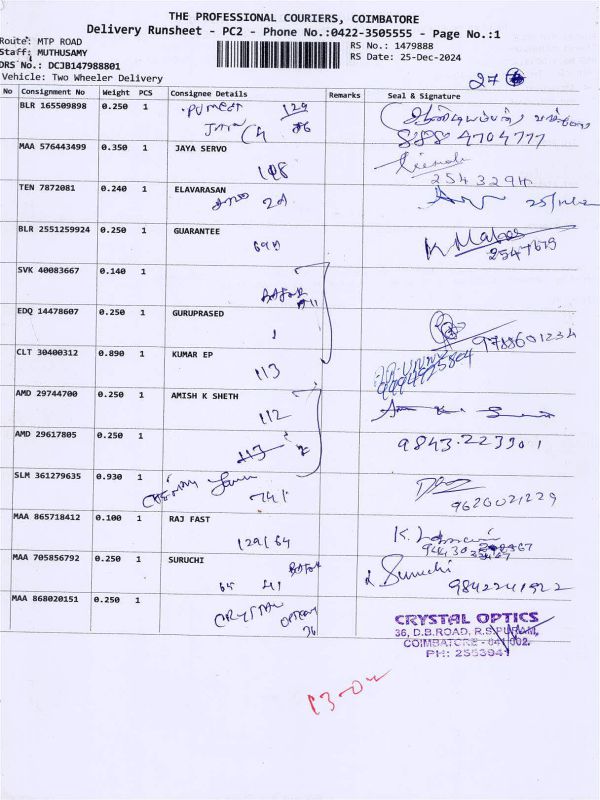 THE PROFESSIONAL COURIERS, COIMBATORE
Delivery Runsheet - PC2 - Phone No.:0422-3505555 - Page No.:1
Route: MTP ROAD
Staff: MUTHUSAMY
DRS No.: DCJB147988801
Vehicle: Two Wheeler Delivery
RS No.: 1479888
RS Date: 25-Dec-2024
27
No Consignment No Weight PCS Consignee Details Remarks Seal & Signature
BLR 165509898 0.250 1 129
4704777
MAA 576443499 0.350 1 JAYA SERVO
108
TEN 7872081 0.240 1 ELAVARASAN
BLR 2551259924 0.250 1 GUARANTEE
2547675
SVK 40083667 0.140 1
EDQ 14478607 0.250 1 GURUPRASED
1 9788601234
CLT 30400312 0.890 1 KUMAR EP
113
AMD 29744700 0.250 1 AMISH K SHETH
112
AMD 29617805 0.250 1
113 9843.223901
SLM 361279635 0.930 1
741 9620021229
MAA 865718412 0.100 1 RAJ FAST
129/64
MAA 705856792 0.250 1 SURUCHI
Suruchi
65 41 9842241922
MAA 868020151 0.250 1
CRYSTAL
CRYSTAL OPTICS
36, D.B.ROAD, R.S.PURAM,
COIMBATORE - 641 002.
PH: 2553941
13-02